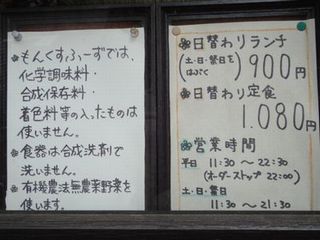 もんくすふーずでは、
化学調味料・
合成保存料・
着色料等の入ったものは
使いません。
食器は合成洗剤で
洗いません。
有機農法無農薬野菜を
使います。
日替わりランチ
(土・日・祭日を
はぶく) 900円
日替わり定食
1.080円
営業時間
平日 11:30〜22:30
(オーダーストップ 22:00)
土・日・祭日
11:30〜21:30